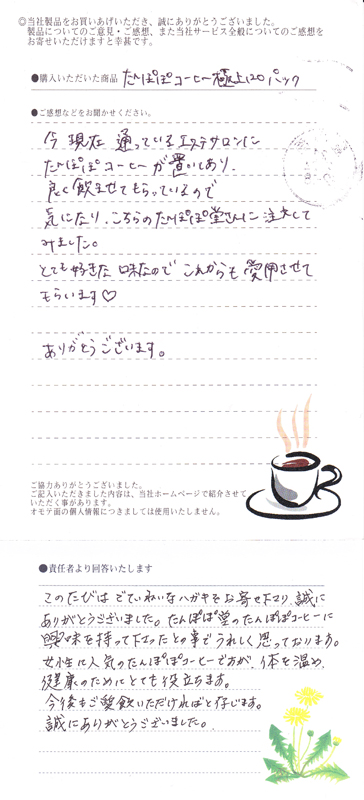 ◎当社製品をお買いあげいただき、誠にありがとうございました。
製品についてのご意見・ご感想、また当社サービス全般についてのご感想を
お寄せいただけますと幸甚です。
●購入いただいた商品 たんぽぽコーヒー極上120パック
●ご感想などをお聞かせください。
今現在通っているエステサロンに
たんぽぽコーヒーが置いてあり、
良く飲ませてもらっているので
気になり、こちらのたんぽぽ堂さんに注文して
みました。
とても好きな味なのでこれからも愛用させて
もらいます♡
ありがとうございます。
ご協力ありがとうございました。
ご記入いただきました内容は、当社ホームページで紹介させて
いただく事があります。
オモテ面の個人情報につきましては使用いたしません。
●責任者より回答いたします
このたびはごていねいなハガキをお寄せ下さり、誠に
ありがとうございました。たんぽぽ堂のたんぽぽコーヒーに
興味を持って下さったとの事でうれしく思っております。
女性に人気のたんぽぽコーヒーですが、体を温め、
健康のためにとても役立ちます。
今後もご愛飲いただければと存じます。
誠にありがとうございました。